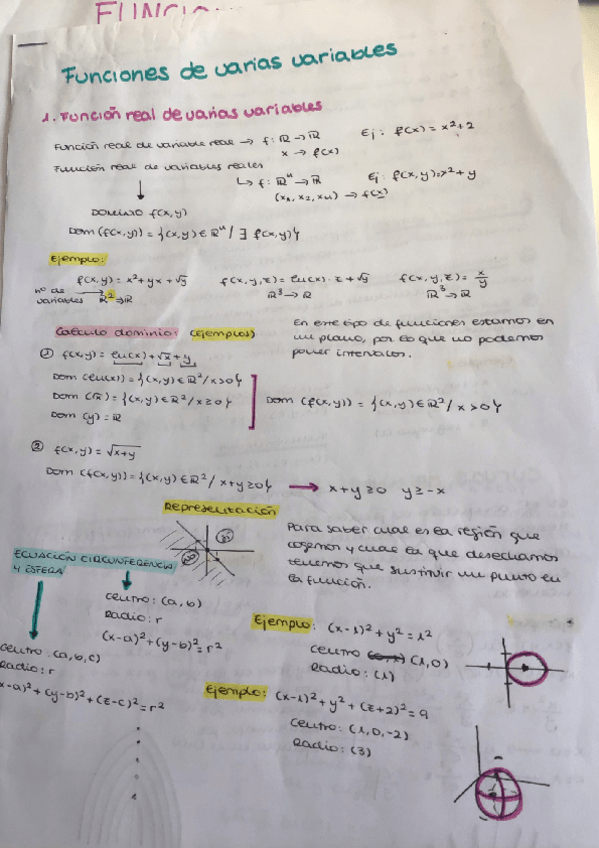 FUNCIO
Funciones de varias variables
1. Función real de varias variables
Función real de variable real → f: ℝ → ℝ Ej: f(x) = x²+2
x → f(x)
Función real de variables reales
↳ f: ℝⁿ → ℝ Ej: f(x,y)=x²+y
(x₁, x₂, xₙ) → f(x)
DOMINIO f(x,y)
Dom (f(x,y)) = {(x,y) ∈ ℝⁿ / ∃ f(x,y)}
Ejemplo:
f(x,y) = x²+yx+√y f(x,y,z) = ln(x)·z+√y f(x,y,z) = x/y
nº de variables ℝ² → ℝ ℝ³ → ℝ ℝ³ → ℝ
Cálculo dominio: (ejemplos)
En este tipo de funciones estamos en
un plano, por lo que no podemos
poner intervalos.
① f(x,y) = ln(x) + √x + y
Dom (ln(x)) = {(x,y) ∈ ℝ² / x>0}
Dom (√x) = {(x,y) ∈ ℝ² / x≥0} Dom (f(x,y)) = {(x,y) ∈ ℝ² / x>0}
Dom (y) = ℝ
② f(x,y) = √x+y
Dom (f(x,y)) = {(x,y) ∈ ℝ² / x+y≥0} → x+y≥0 y≥-x
Representación
Para saber cual es la región que
cogemos y cual la que desechamos
tenemos que sustituir un punto en
la función.
ECUACIÓN CIRCUNFERENCIA
Y ESFERA
centro: (a,b)
Radio: r
(x-a)²+(y-b)²=r²
centro: (a,b,c)
Radio: r
x-a)²+(y-b)²+(z-c)²=r²
Ejemplo: (x-1)²+y²=1²
centro (1,0)
Radio: (1)
Ejemplo: (x-1)²+y²+(z+2)²=9
centro: (1,0,-2)
Radio: (3)